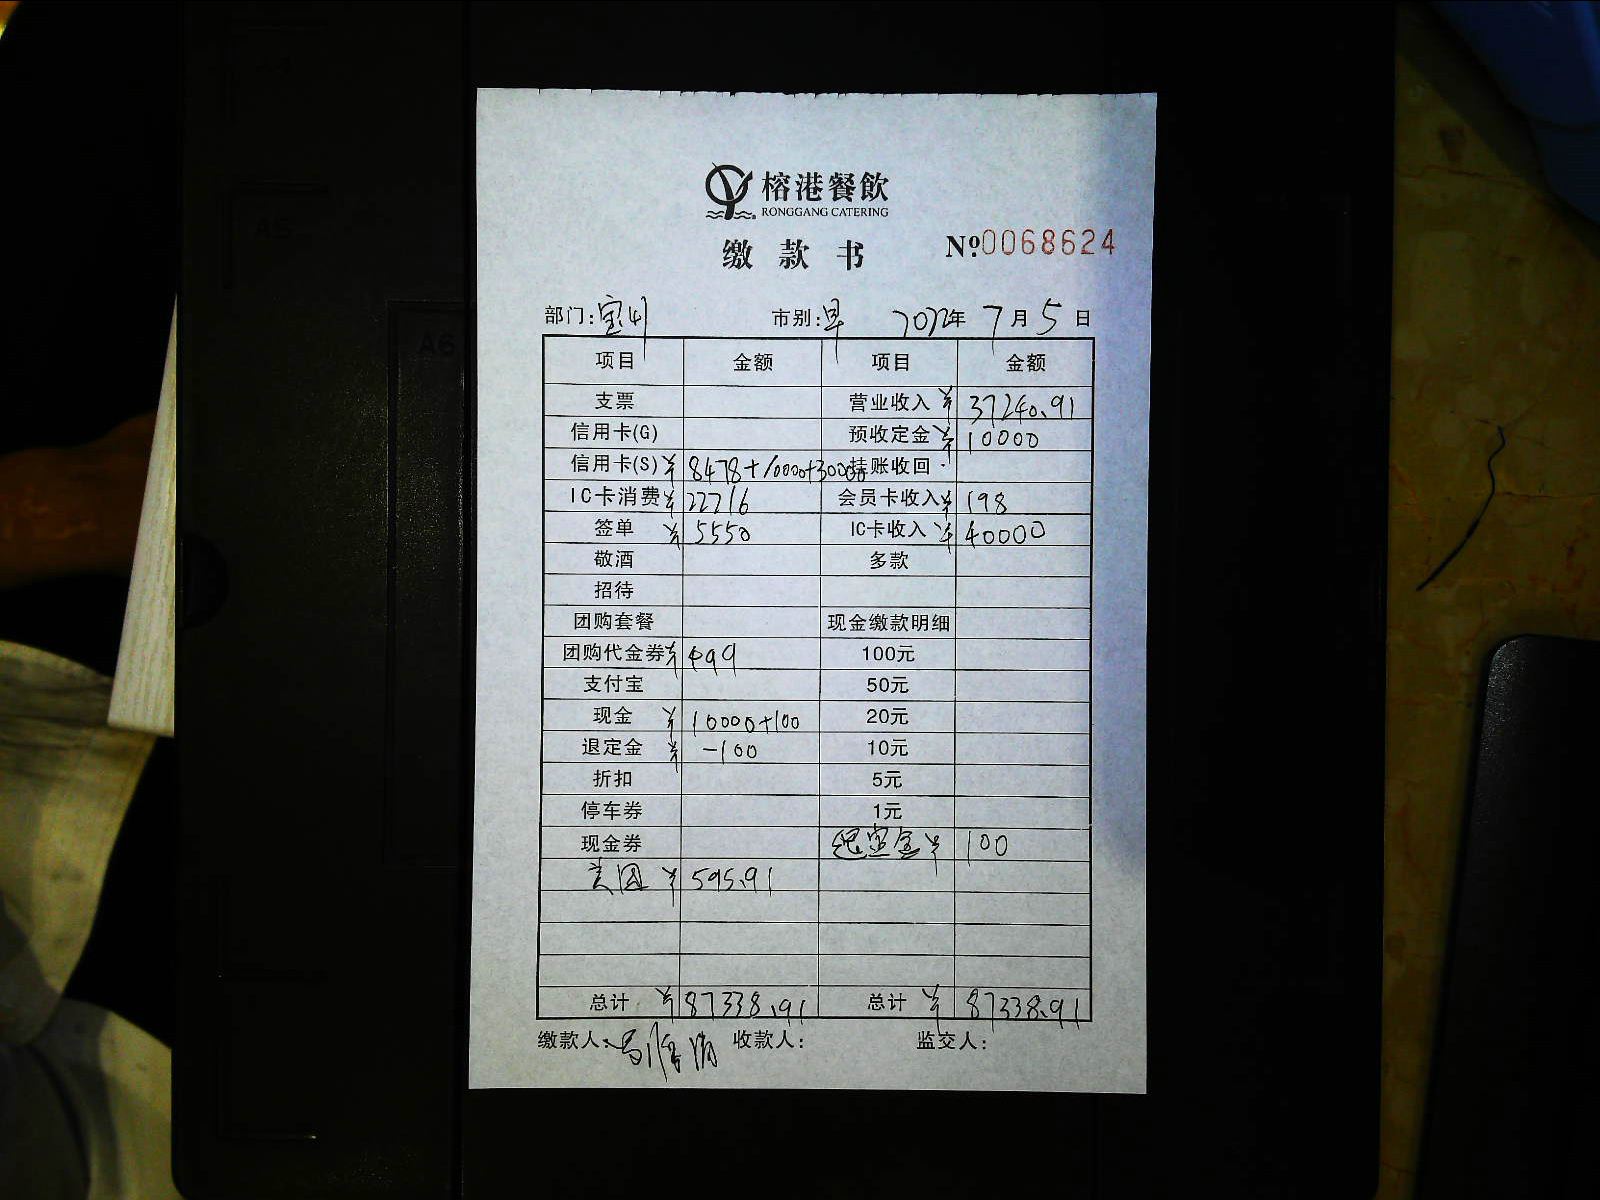 榕港餐飲
RONGGANG CATERING
缴款书 №0068624
部门: 市别:早 2022年7月5日
项目 金额 项目 金额
支票 营业收入 ¥ 37240.91
信用卡(G) 预收定金 ¥ 10000
信用卡(S) ¥ 8478+10000+30000 挂账收回
IC卡消费 ¥ 22716 会员卡收入 ¥ 198
签单 ¥ 5550 IC卡收入 ¥ 40000
敬酒 多款
招待
团购套餐 现金缴款明细
团购代金券 ¥ 499 100元
支付宝 50元
现金 ¥ 10000+100 20元
退定金 ¥ -100 10元
折扣 5元
停车券 1元
现金券 退定金 ¥ 100
美团 ¥ 595.91
总计 ¥ 87338.91 总计 ¥ 87338.91
缴款人: 收款人: 监交人:
A5
A6